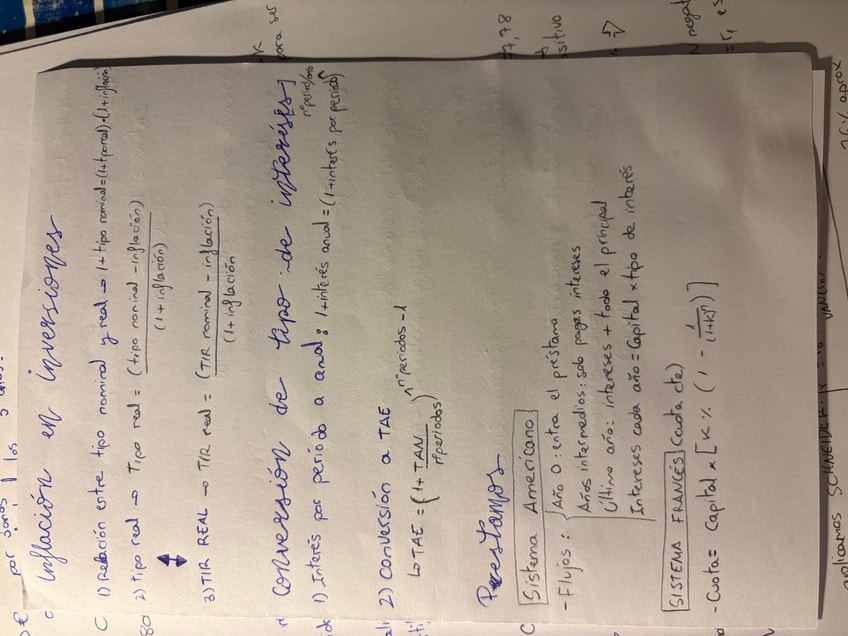 Inflación en inversiones
1) Relación entre tipo nominal y real → 1+tipo nominal=(1+tporeal)·(1+inflación)
2) tipo real → Tipo real = (tipo nominal - inflación) / (1+inflación)
3) TIR REAL → TIR real = (TIR nominal - inflación) / (1+inflación)
Conversión de tipo de interéses]
1) Interés por periodo a anual: 1+interés anual = (1+interés por periodo)^nºperiod/año
2) Conversión a TAE
↳ TAE = (1 + TAN / nºperiodos)^nºperiodos - 1
Prestamos
Sistema Americano
- Flujos: Año 0: entra el préstamo
Años intermedios: solo pagas intereses
Último año: intereses + todo el principal
Intereses cada año = Capital x tipo de interés
SISTEMA FRANCÉS (cuota cte)
- Cuota = Capital x [K % (1 - 1/(1+K)^n)]
77,78
para ser
negat
los
por
aplicamos SCHNEIDER:
aprox